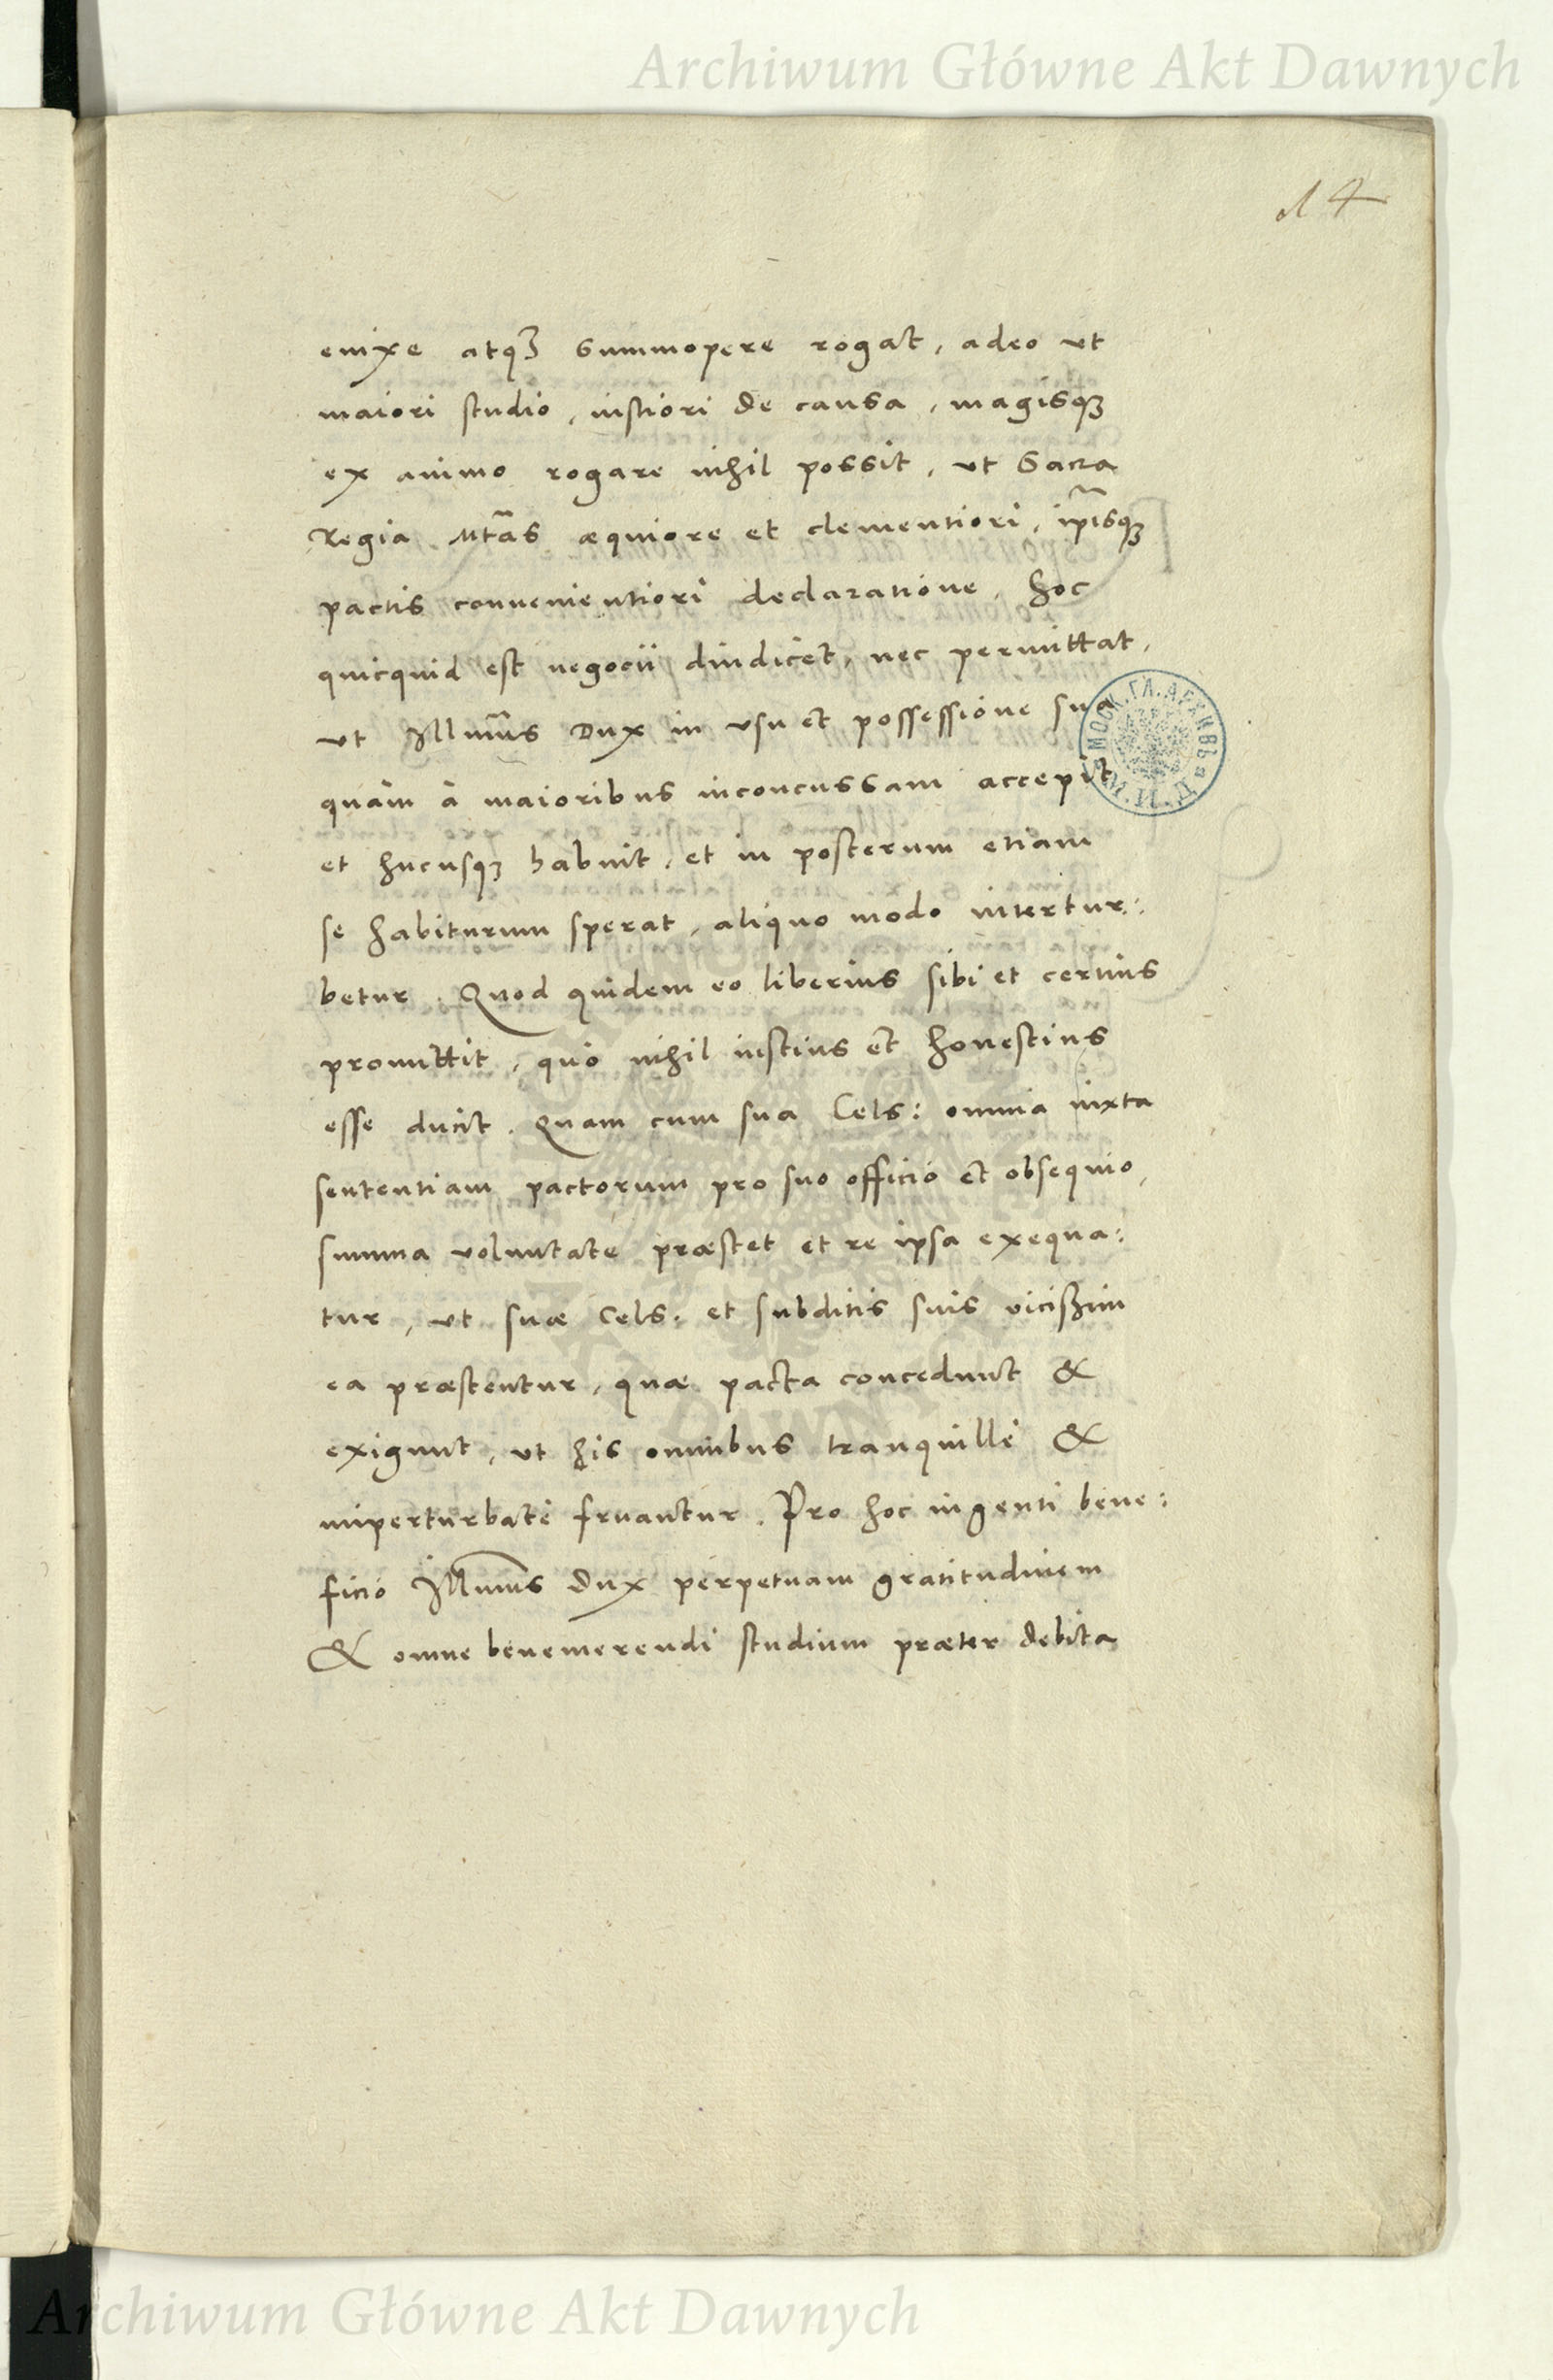 Archiwum Główne Akt Dawnych
14
enixe atqꝫ summopere rogat, adeo ut
maiori studio, iustiori de causa, magisqꝫ
ex animo rogare nihil possit, ut Sacra
Regia Mtas æquiore et clementiori, ip̃isqꝫ
pactis convenientiori declaratione, hoc
quicquid est negocii diudicet, nec permittat,
ut Illmũs Dux in usu et possessione sua
quàm à maioribus inconcussam accepit
et hucusqꝫ habuit, et in posterum etiam
se habiturum sperat, aliquo modo intertur:
betur. Quod quidem eo liberius sibi et certius
promittit, quò nihil iustius et honestius
esse ducit. Quam cum sua Cels: omnia iuxta
sententiam pactorum pro suo officio et obsequio,
summa voluntate præstet et re ipsa exequa:
tur, ut suæ Cels: et subditis suis vicißim
ea præstentur, quæ pacta concedunt &
exigunt, ut his omnibus tranquillè &
imperturbatè fruantur. Pro hoc ingenti bene:
ficio Illmus Dux perpetuam gratitudinem
& omne benemerendi studium præter debita
МОСК. ГЛ. АРХИВЪ
AKT DAWNYCH
Archiwum Główne Akt Dawnych